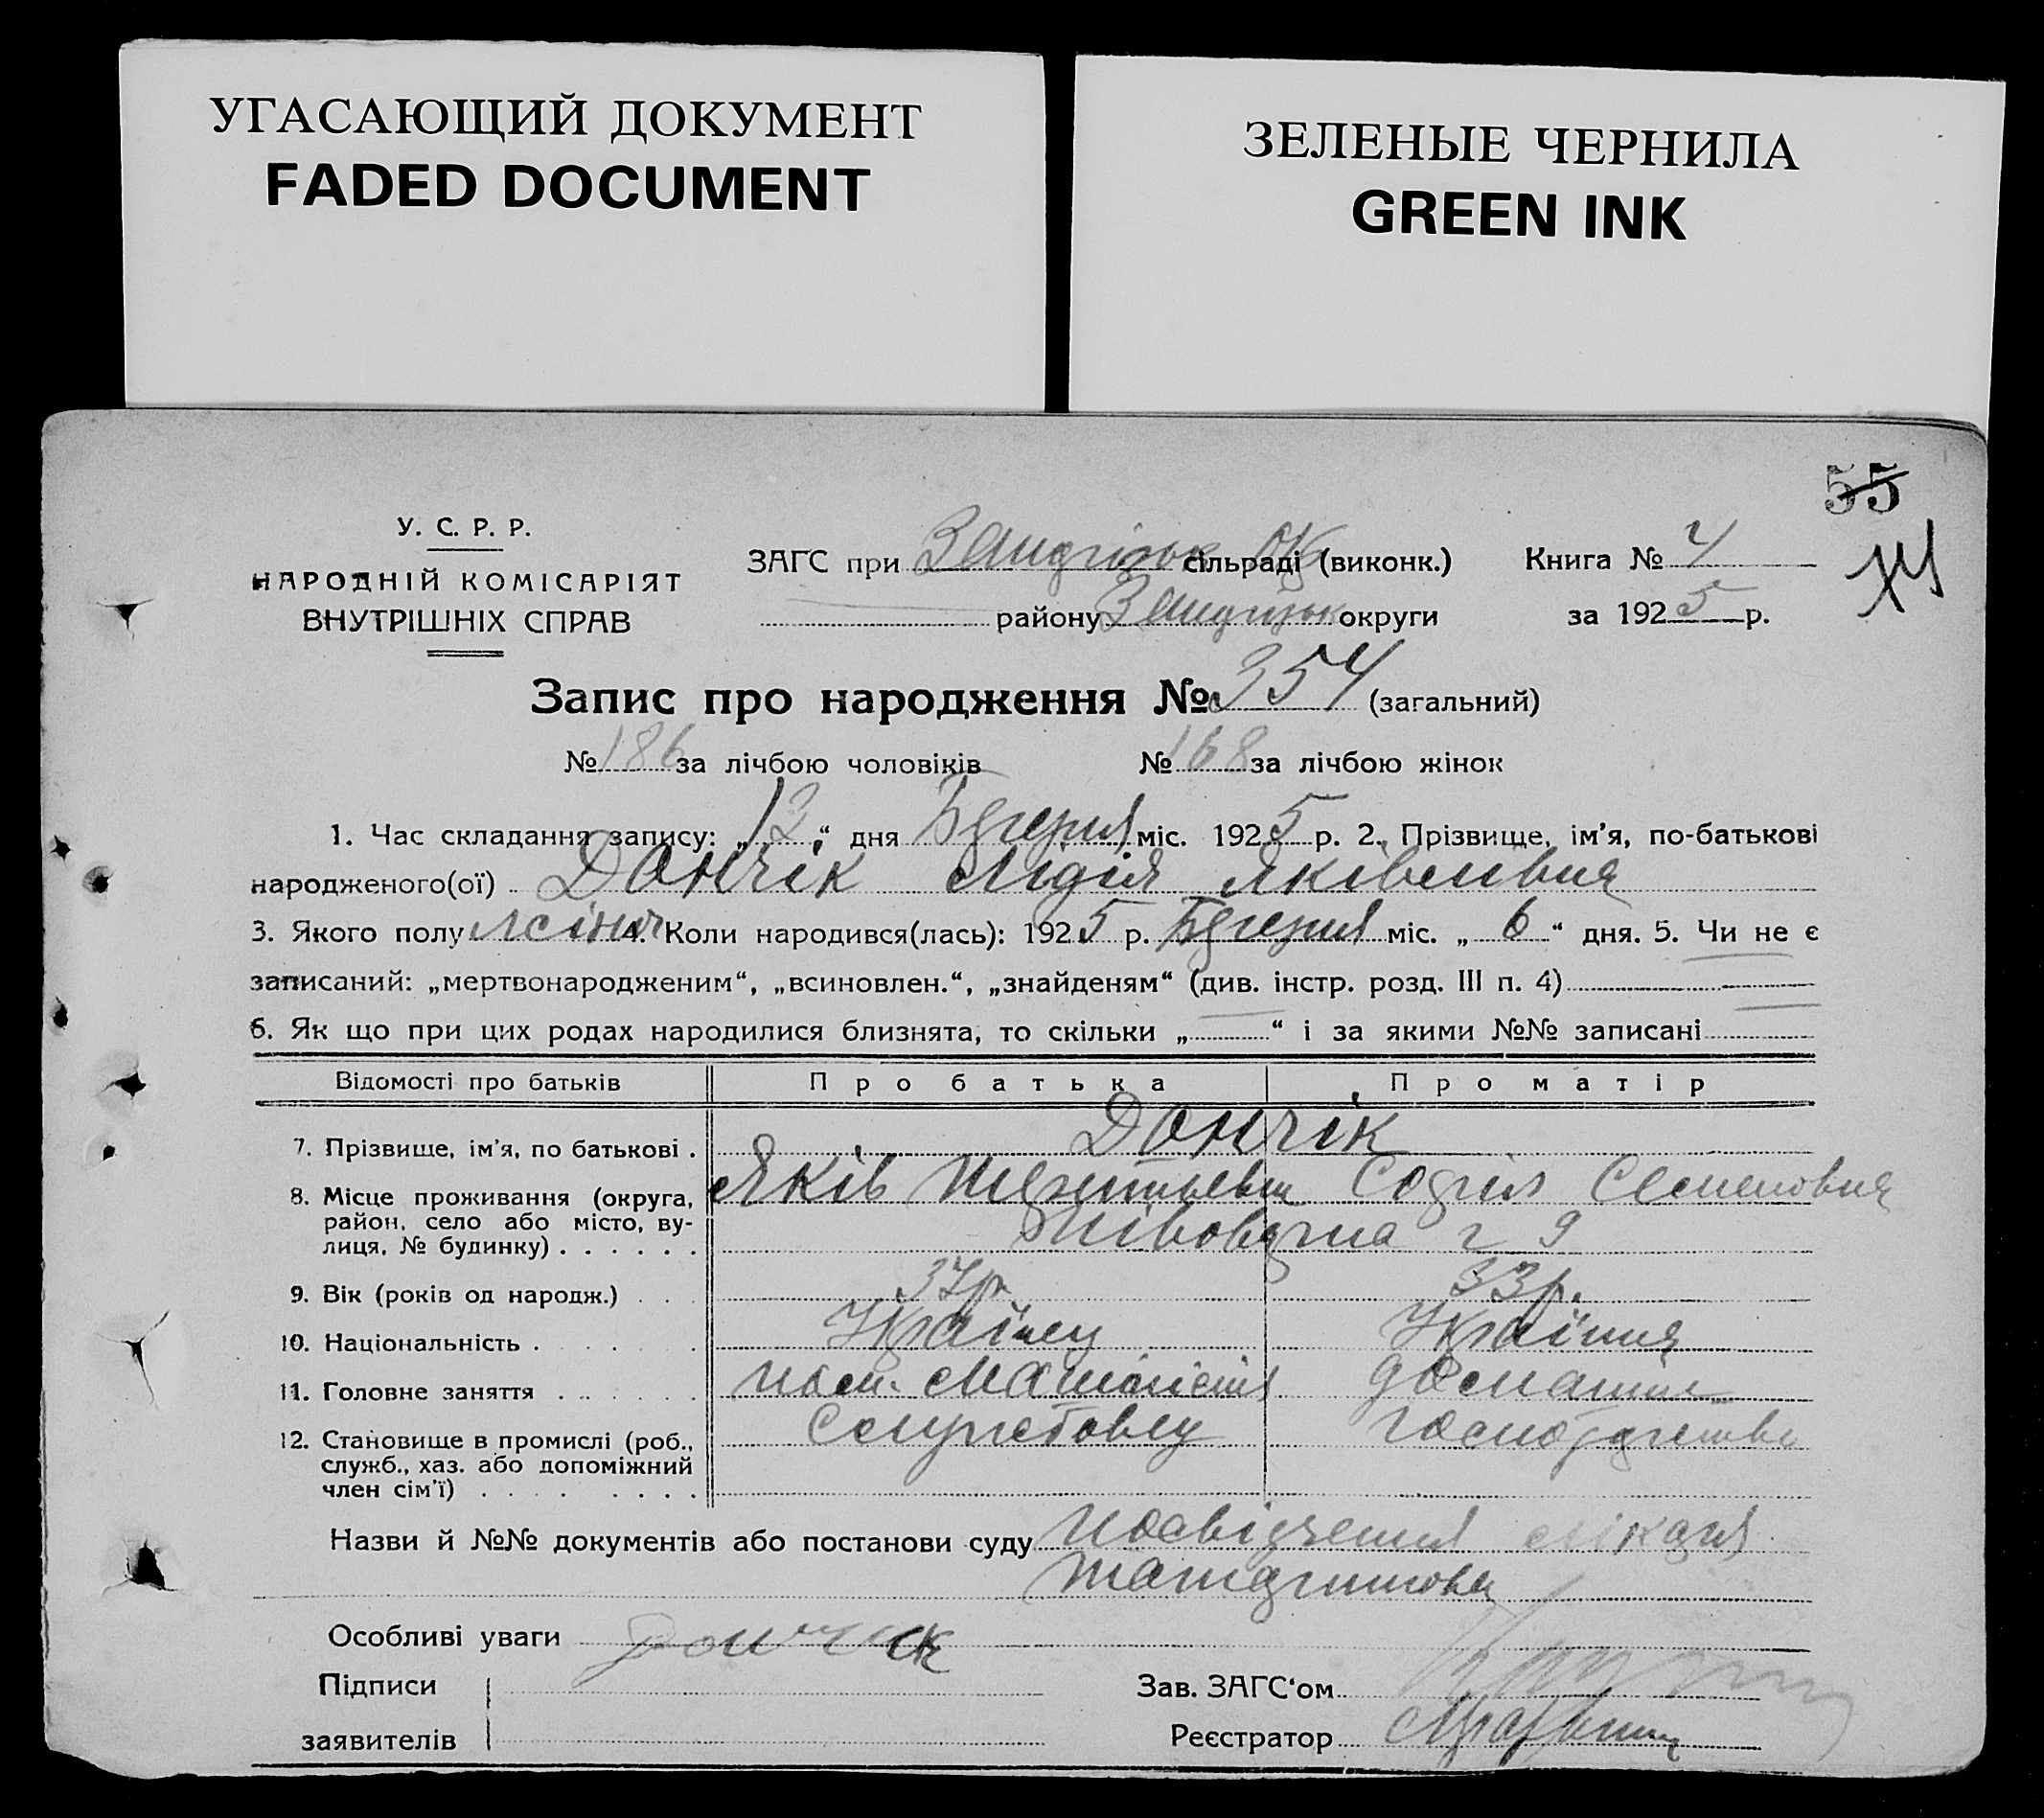 УГАСАЮЩИЙ ДОКУМЕНТ
FADED DOCUMENT
ЗЕЛЕНЫЕ ЧЕРНИЛА
GREEN INK
55
У. С. Р. Р.
НАРОДНІЙ КОМІСАРІЯТ
ВНУТРІШНІХ СПРАВ
ЗАГС при сільраді (виконк.)
району округи
Книга № 4
за 1925 р.
Запис про народження № 354 (загальний)
№ 186 за лічбою чоловіків № 168 за лічбою жінок
1. Час складання запису: „13“ дня міс. 1925 р. 2. Прізвище, ім’я, по-батькові
народженого(ої) Дончік Лідія Яківлівна
3. Якого полу жіноч 4. Коли народився(лась): 1925 р. міс. „6“ дня. 5. Чи не є
записаний: „мертвонародженим“, „всиновлен.“, „знайденям“ (див. інстр. розд. III п. 4)
6. Як що при цих родах народилися близнята, то скільки „ “ і за якими №№ записані
Відомості про батьків Про батька Про матір
7. Прізвище, ім’я, по батькові . Дончік
Яків Софія Семеновна
8. Місце проживання (округа,
район, село або місто, ву-
лиця, № будинку) . . . . . . 9
9. Вік (років од народж.) . . . 37р. 33р.
10. Національність . . . . . . Українец Українка
11. Головне заняття . . . . . пом. машиніста домашнє
12. Становище в промислі (роб., Службовец господарство
служб., хаз. або допоміжний
член сім’ї) . . . . . . . .
Назви й №№ документів або постанови суду посвідчення лікаря
Особливі уваги Дончик
Підписи
заявителів
Зав. ЗАГС‘ом
Реєстратор